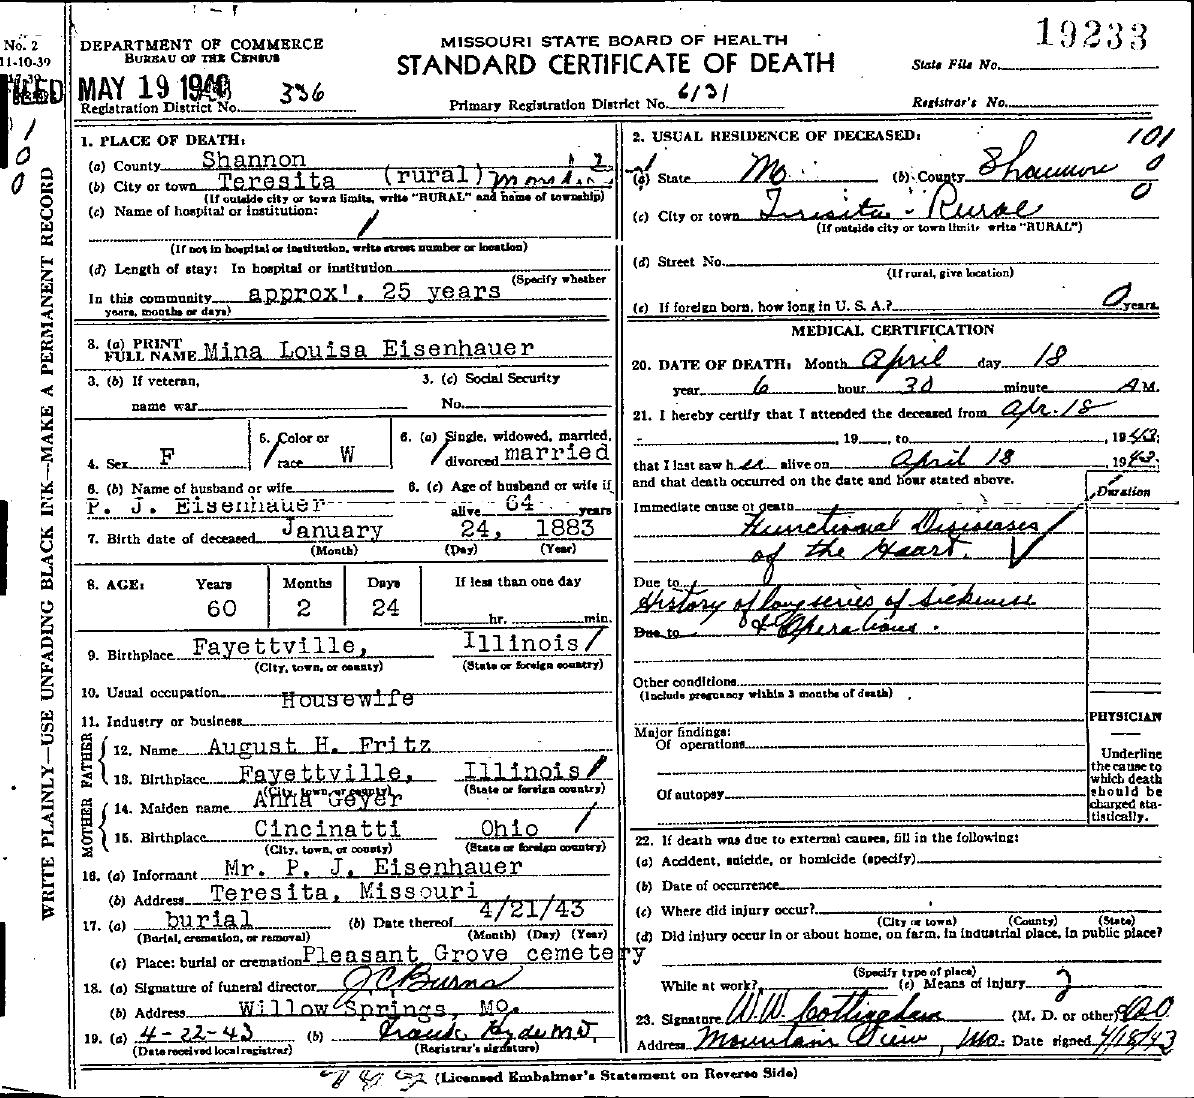 19233
No. 2
11-10-39
DEPARTMENT OF COMMERCE
BUREAU OF THE CENSUS
MISSOURI STATE BOARD OF HEALTH
STANDARD CERTIFICATE OF DEATH
State File No.
FILED MAY 19 1943
Registration District No. 336
Primary Registration District No. 6131
Registrar's No.
WRITE PLAINLY—USE UNFADING BLACK INK—MAKE A PERMANENT RECORD
1. PLACE OF DEATH:
(a) County Shannon
(b) City or town Teresita (rural)
(If outside city or town limits, write "RURAL" and name of township)
(c) Name of hospital or institution:
(If not in hospital or institution, write street number or location)
(d) Length of stay: In hospital or institution
(Specify whether
In this community approx'. 25 years
years, months or days)
3. (a) PRINT
FULL NAME Mina Louisa Eisenhauer
3. (b) If veteran,
name war
3. (c) Social Security
No.
4. Sex F
5. Color or
race W
6. (a) Single, widowed, married,
divorced married
6. (b) Name of husband or wife
P. J. Eisenhauer
6. (c) Age of husband or wife if
alive 64 years
7. Birth date of deceased January 24, 1883
(Month) (Day) (Year)
8. AGE: Years Months Days If less than one day
60 2 24 hr. min.
9. Birthplace Fayettville, Illinois
(City, town, or county) (State or foreign country)
10. Usual occupation Housewife
11. Industry or business
FATHER
12. Name August H. Fritz
13. Birthplace Fayettville, Illinois
(City, town, or county) (State or foreign country)
MOTHER
14. Maiden name Anna Geyer
15. Birthplace Cincinatti Ohio
(City, town, or county) (State or foreign country)
16. (a) Informant Mr. P. J. Eisenhauer
(b) Address Teresita, Missouri
17. (a) burial (b) Date thereof 4/21/43
(Burial, cremation, or removal) (Month) (Day) (Year)
(c) Place: burial or cremation Pleasant Grove cemetery
18. (a) Signature of funeral director J C Burns
(b) Address Willow Springs, Mo.
19. (a) 4-22-43 (b) Frank Hyde MD,
(Date received local registrar) (Registrar's signature)
2. USUAL RESIDENCE OF DECEASED:
(a) State Mo. (b) County Shannon
(c) City or town Teresita - Rural
(If outside city or town limits write "RURAL")
(d) Street No.
(If rural, give location)
(e) If foreign born, how long in U. S. A.? 0 years.
MEDICAL CERTIFICATION
20. DATE OF DEATH: Month April day 18
year 6 hour 30 minute A M.
21. I hereby certify that I attended the deceased from Apr. 18
, 19 , to , 1943;
that I last saw her alive on April 18 1943.
and that death occurred on the date and hour stated above.
Duration
Immediate cause of death
Functional Diseases
of the Heart.
Due to
History of long series of sickness
Due to & Operations.
Other conditions
(Include pregnancy within 3 months of death)
Major findings:
Of operations
Of autopsy
PHYSICIAN
Underline
the cause to
which death
should be
charged sta-
tistically.
22. If death was due to external causes, fill in the following:
(a) Accident, suicide, or homicide (specify)
(b) Date of occurrence
(c) Where did injury occur?
(City or town) (County) (State)
(d) Did injury occur in or about home, on farm, in industrial place, in public place?
(Specify type of place)
While at work? (e) Means of injury
23. Signature W. W. Cottingham (M. D. or other) D.O.
Address Mountain View, Mo. Date signed 4/18/43
(Licensed Embalmer's Statement on Reverse Side)